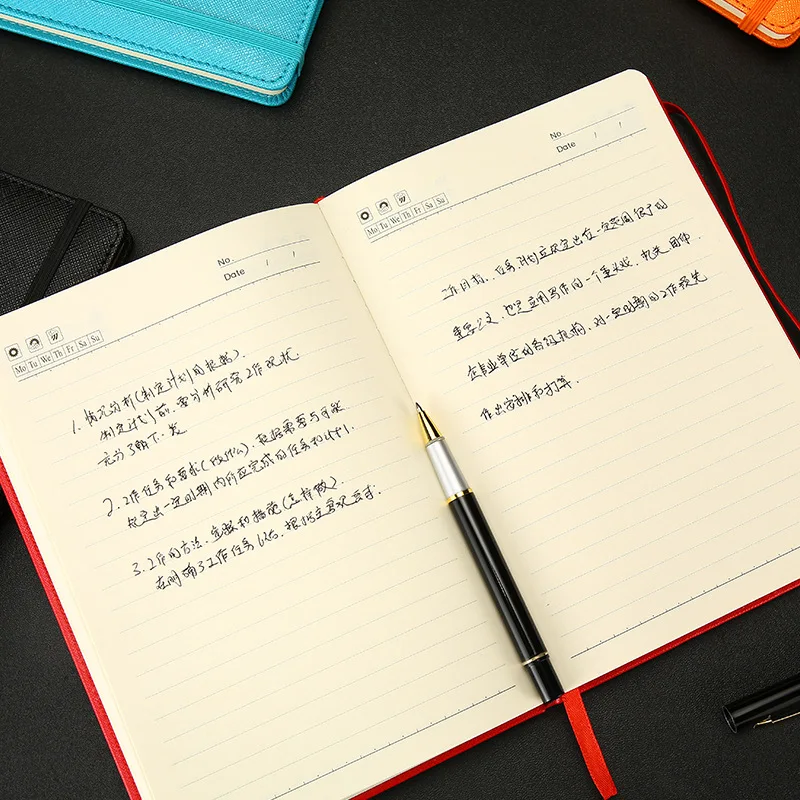 No.
Date / /
Mo Tu We Th Fr Sa Su
1. 情况分析(制定计划的根据).
制定计划前,要分析研究工作现状.
充分了解下.
2. 工作任务和要求(做什么). 根据需要与可能
规定出一定时期内所应完成的任务和
3. 工作的方法、步骤和措施(怎样做).
在明确了工作任务以后,根据主客观
No.
Date / /
Mo Tu We Th Fr Sa Su
工作目标、任务.计划应
重要公文,也是应用写作的一个重头戏,机关.团体.
企事业单位的各级机构,对一定时期的工作预先
作出安排和打算.